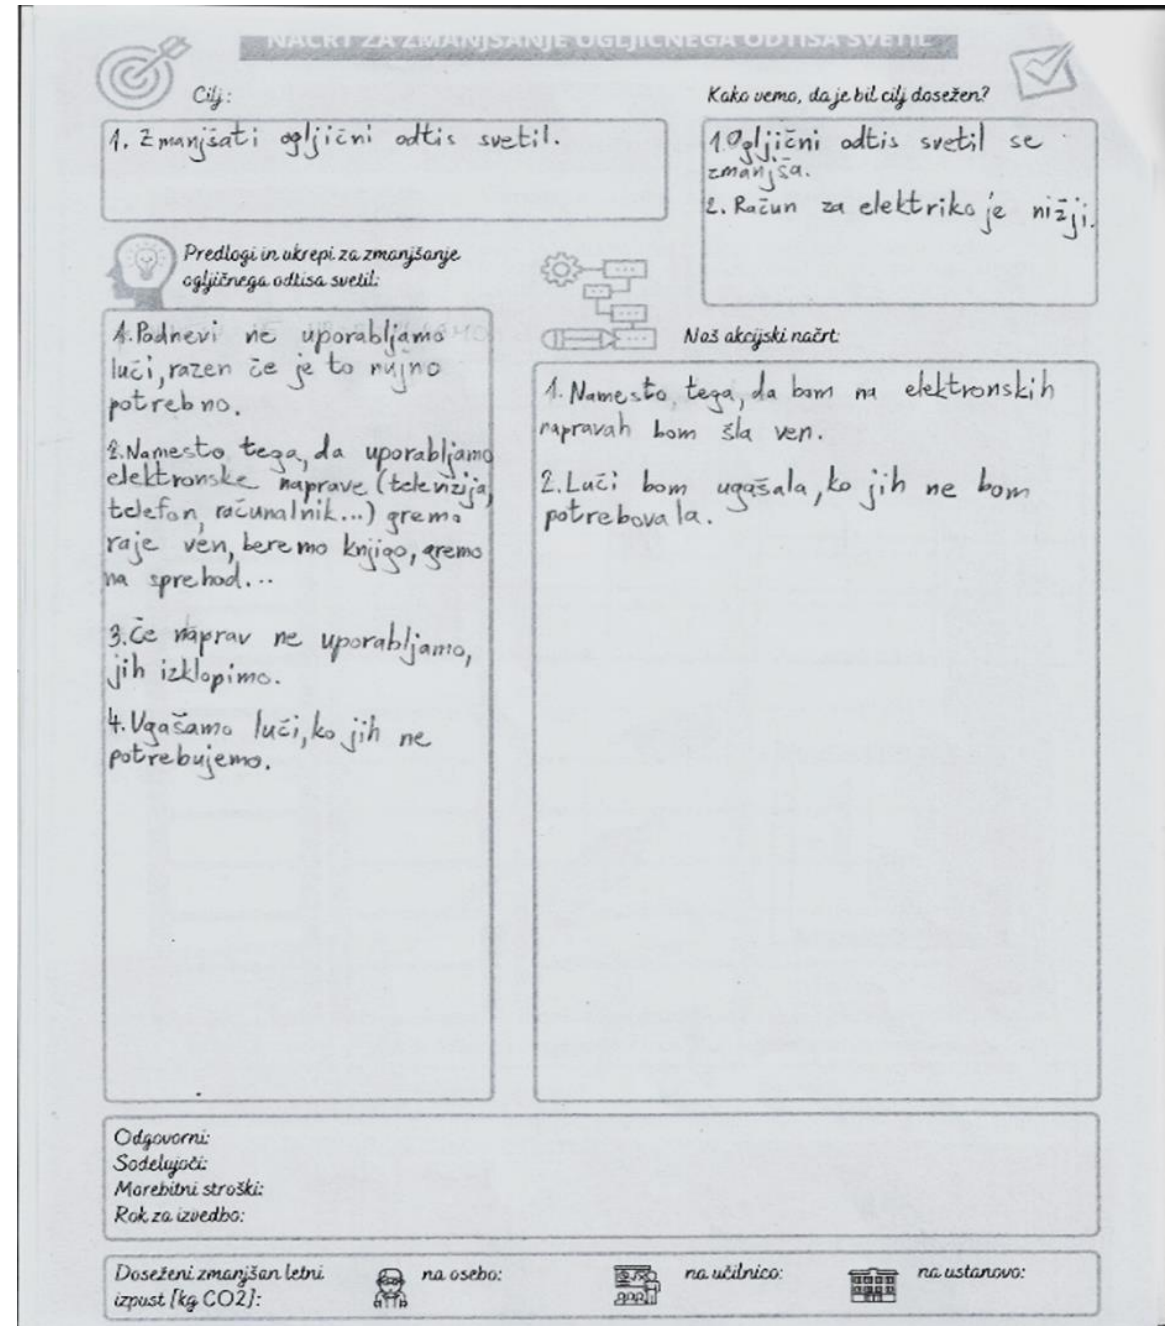 NAČRT ZA ZMANJŠANJE OGLJIČNEGA ODTISA SVETIL
Cilj:
1. Zmanjšati ogljični odtis svetil.
Kako vemo, da je bil cilj dosežen?
1. Ogljični odtis svetil se
zmanjša.
2. Račun za elektriko je nižji.
Predlogi in ukrepi za zmanjšanje
ogljičnega odtisa svetil:
1. Podnevi ne uporabljamo
luči, razen če je to nujno
potrebno.
2. Namesto tega, da uporabljamo
elektronske naprave (televizija,
telefon, računalnik...) gremo
raje ven, beremo knjigo, gremo
na sprehod...
3. Če naprav ne uporabljamo,
jih izklopimo.
4. Ugašamo luči, ko jih ne
potrebujemo.
Naš akcijski načrt:
1. Namesto tega, da bom na elektronskih
napravah bom šla ven.
2. Luči bom ugašala, ko jih ne bom
potrebovala.
Odgovorni:
Sodelujoči:
Morebitni stroški:
Rok za izvedbo:
Doseženi zmanjšan letni
izpust [kg CO2]:
na osebo:
na učilnico:
na ustanovo: